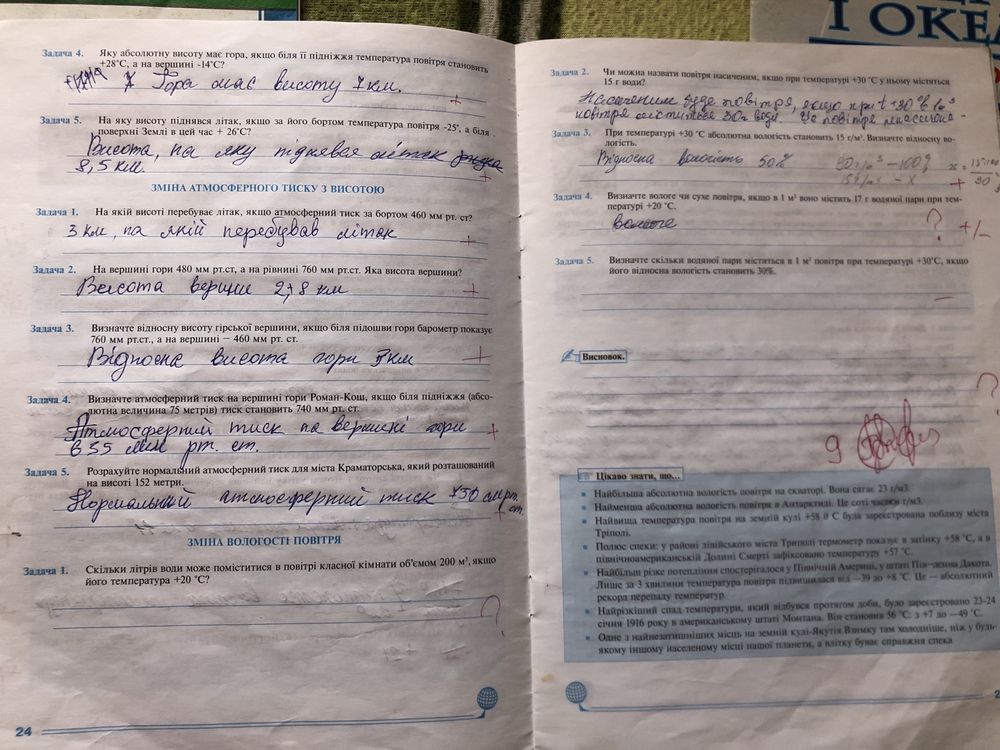 І ОКЕ
Задача 4. Яку абсолютну висоту має гора, якщо біля її підніжжя температура повітря становить
+28°С, а на вершині -14°С?
7 Гора має висоту 7 км.
+
Задача 5. На яку висоту піднявся літак, якщо за його бортом температура повітря -25°, а біля
поверхні Землі в цей час + 26°С?
Висота, на яку піднявся літак
8,5 км.
+
ЗМІНА АТМОСФЕРНОГО ТИСКУ З ВИСОТОЮ
Задача 1. На якій висоті перебуває літак, якщо атмосферний тиск за бортом 460 мм рт. ст?
3 км, на якій перебував літак
+
Задача 2. На вершині гори 480 мм рт.ст, а на рівнині 760 мм рт.ст. Яка висота вершини?
Висота вершини 2,8 км
+
Задача 3. Визначте відносну висоту гірської вершини, якщо біля підошви гори барометр показує
760 мм рт.ст., а на вершині – 460 мм рт. ст.
Відносна висота гори 3 км
+
Задача 4. Визначте атмосферний тиск на вершині гори Роман-Кош, якщо біля підніжжя (абсо-
лютна величина 75 метрів) тиск становить 740 мм рт. ст.
Атмосферний тиск на вершині гори
+
рт. ст.
Задача 5. Розрахуйте нормальний атмосферний тиск для міста Краматорська, який розташований
на висоті 152 метри.
Нормальний атмосферний тиск 750
ст.
+
ЗМІНА ВОЛОГОСТІ ПОВІТРЯ
Задача 1. Скільки літрів води може поміститися в повітрі класної кімнати об'ємом 200 м³, якщо
його температура +20 °С?
?
24
Задача 2. Чи можна назвати повітря насиченим, якщо при температурі +30 °С у ньому міститься
15 г води?
Насиченим буде повітря, якщо при t +30°
повітря міститься 30г води. Це повітря
Задача 3. При температурі +30 °С абсолютна вологість становить 15 г/м³. Визначте відносну во-
логість.
Відносна вологість 50% 30 г/м³ – 100%
15 г/м³ – х
+
Задача 4. Визначте вологе чи сухе повітря, якщо в 1 м³ воно містить 17 г водяної пари при тем-
пературі +20 °С.
вологе ? +/–
Задача 5. Визначте скільки водяної пари міститься в 1 м³ повітря при температурі +30°С, якщо
його відносна вологість становить 30%.
–
Висновок.
?
9
Цікаво знати, що...
Найбільша абсолютна вологість повітря на екваторі. Вона сягає 23 г/м3.
Найменша абсолютна вологість повітря в Антарктиді. Це соті частки г/м3.
Найвища температура повітря на земній кулі +58 0 С була зареєстрована поблизу міста
Тріполі.
Полюс спеки: у районі лівійського міста Триполі термометр показує в затінку +58 °С, а в
північноамериканській Долині Смерті зафіксовано температуру +57 °С.
Найбільш різке потепління спостерігалося у Північній Америці, у штаті Пів–денна Дакота.
Лише за 3 хвилини температура повітря підвищилася від —39 до +8 °С. Це — абсолютний
рекорд перепаду температур.
Найрізкіший спад температури, який відбувся протягом доби, було зареєстровано 23-24
січня 1916 року в американському штаті Монтана. Він становив 56 °С: з +7 до —49 °С.
Одне з найнезатишніших місць на земній кулі-Якутія.Взимку там холодніше, ніж у будь-
якому іншому населеному місці нашої планети, а влітку буває справжня спека
2